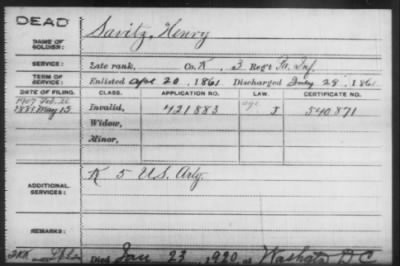 DEAD
NAME OF SOLDIER: Savitz, Henry
SERVICE: Late rank, Co. K, 3 Reg't Pa. Inf.
TERM OF SERVICE: Enlisted Apr 20, 1861 Discharged July 28, 1861
DATE OF FILING. CLASS. APPLICATION NO. LAW. CERTIFICATE NO.
1907 Feb. age
1881 May 13 Invalid, 421883 J 540871
Widow,
Minor,
ADDITIONAL SERVICES: K 5 U.S. Arty.
REMARKS:
Died Jan 23, 1920, at Washgtn D C